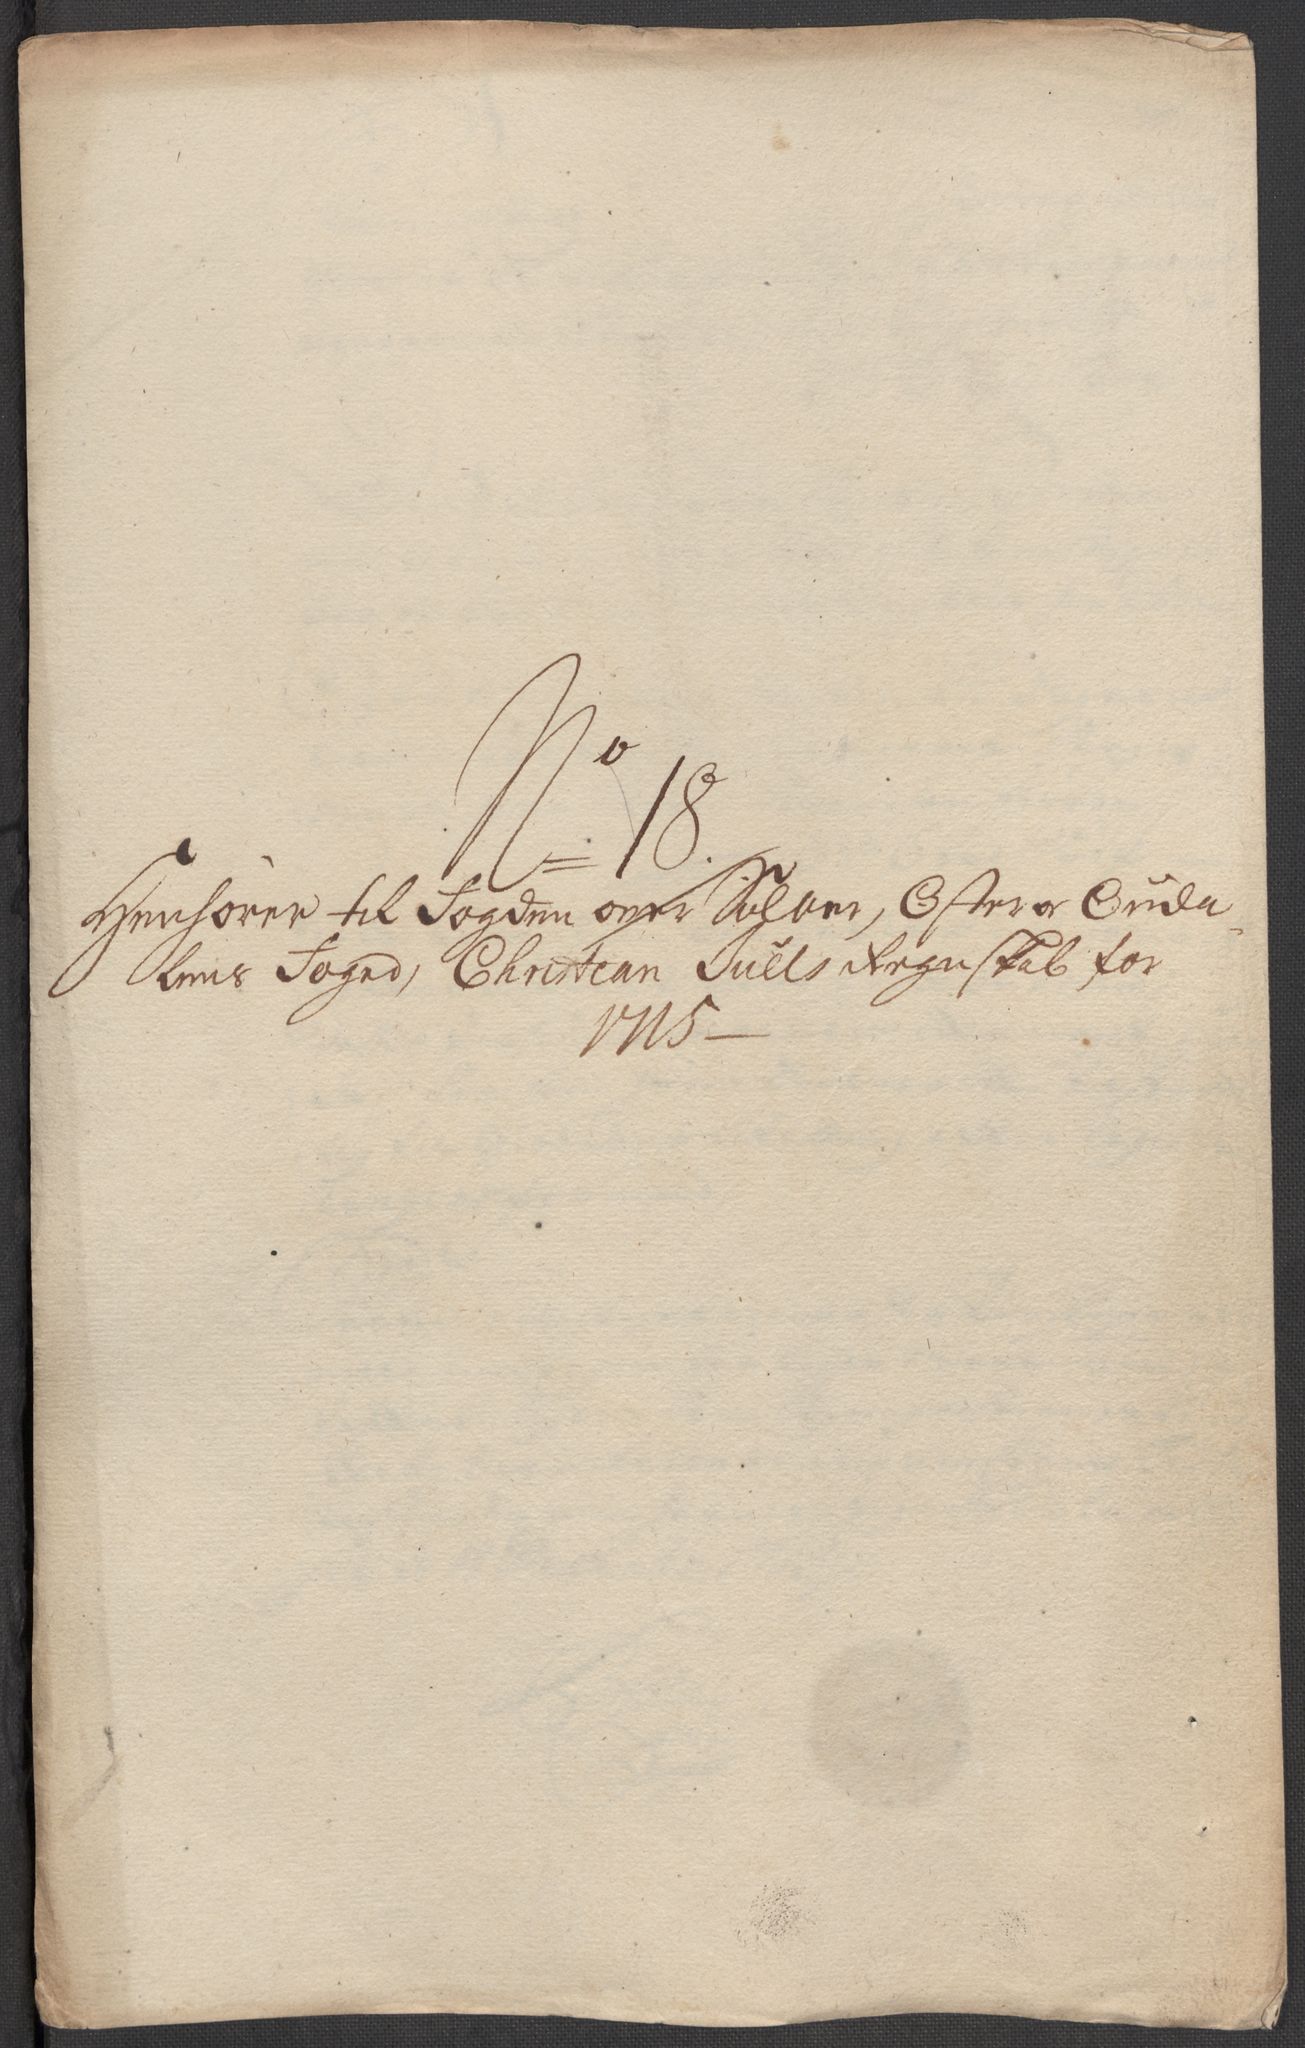 No 18.
Henhører til Fogden over Soløer, Øster og Guda-
lens Foged, Christian Juels Regnskab for
1715